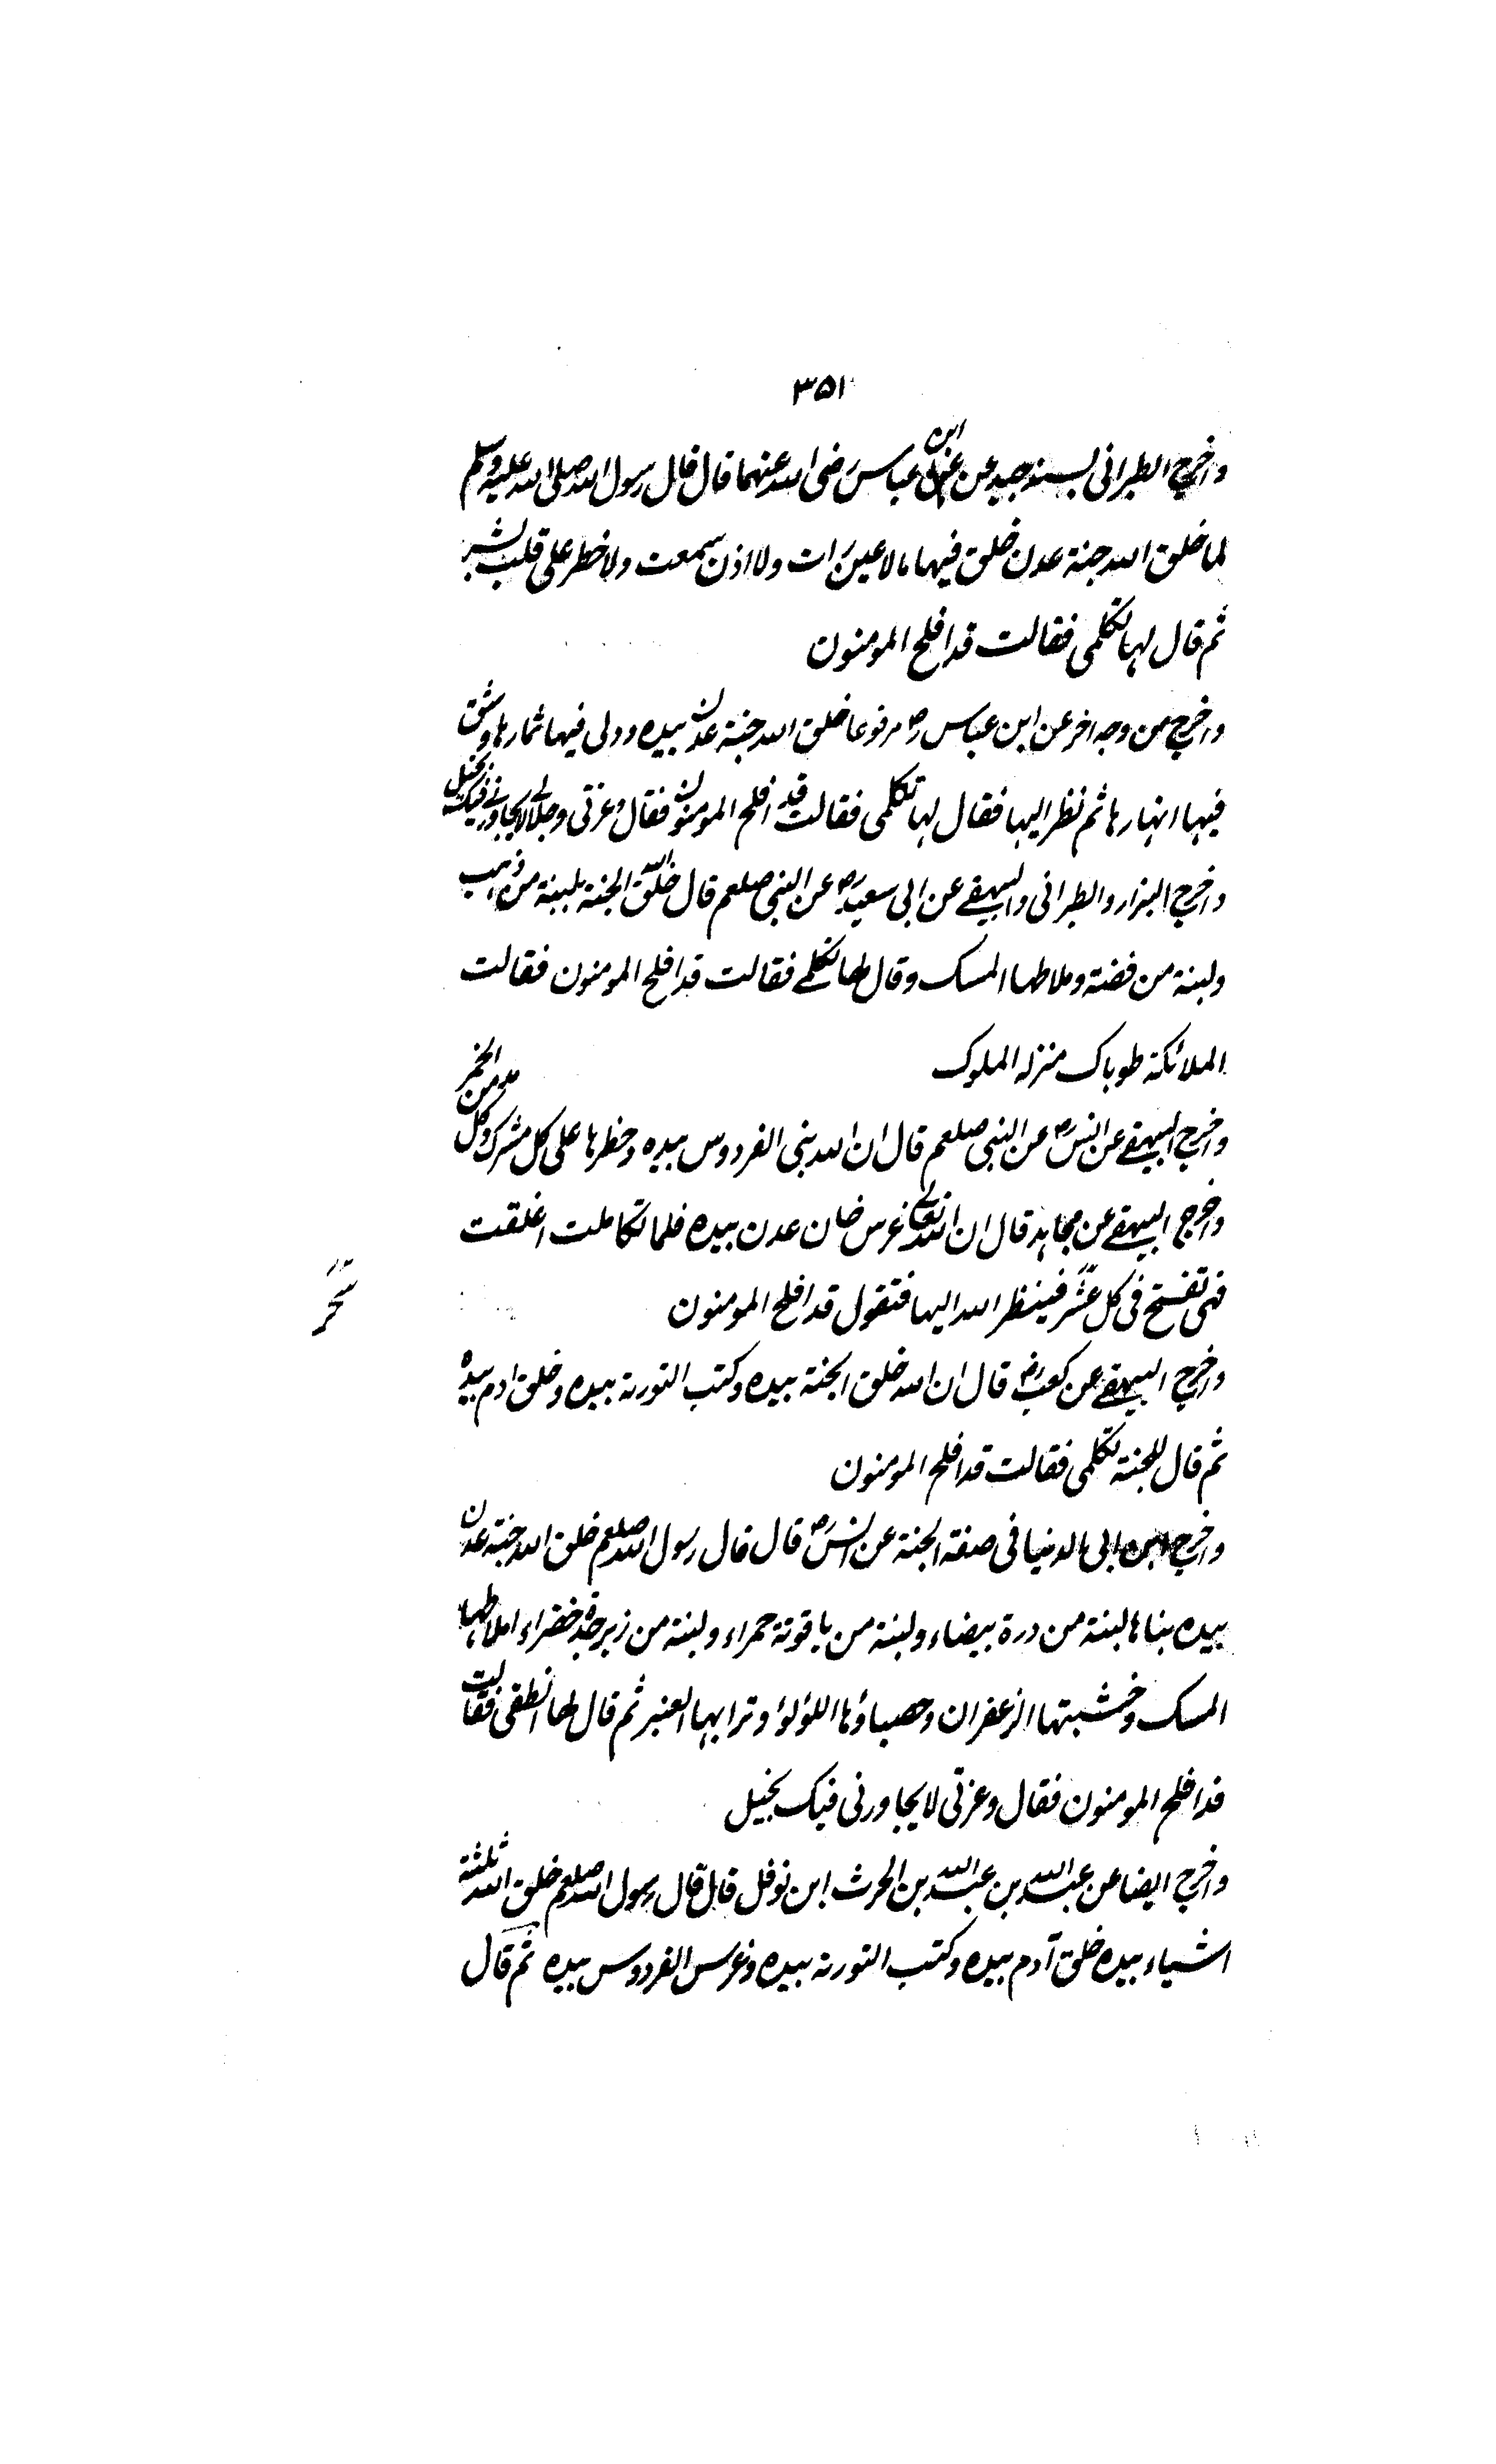 ٣٥١
واخرج الطبرانى بسند جيد عن ابن عباس رضى الله عنهما قال قال رسول الله صلى الله عليه وسلم
لما خلق الله جنة عدن خلق فيها مالا عين رات ولا اذن سمعت ولا خطر على قلب بشر
ثم قال لها تكلمى فقالت قد افلح المومنون
واخرج من وجه اخر عن ابن عباس رض مرفوعا خلق الله جنة عدن بيده ودلى فيها ثمارها وشق
فيها انهارها ثم نظر اليها فقال لها تكلمى فقالت قد افلح المومنون فقال وعزتى وجلالى لا يجاورنى فيك بخيل
واخرج البزار والطبرانى والبيهقى عن ابى سعيد رض عن النبى صلعم قال خلق الله الجنة بلبنة من ذهب
ولبنة من فضة وملاطها المسك وقال لها تكلمى فقالت قد افلح المومنون فقالت
الملائكة طوباك منزلة الملوك
واخرج البيهقى عن انس رض عن النبى صلعم قال ان الله بنى الفردوس بيده وحظرها على كل مشرك وكل مدمن الخمر
واخرج البيهقى عن مجاهد قال ان الله تعالى غرس جنان عدن بيده فلما تكاملت اغلقت
فهى تفتح فى كل سحر فينظر الله اليها فتقول قد افلح المومنون
سحر
واخرج البيهقى عن كعب رض قال ان الله خلق الجنة بيده وكتب التورىة بيده وخلق ادم بيده
ثم قال للجنة تكلمى فقالت قد افلح المومنون
واخرج ابن ابى الدنيا فى صفة الجنة عن انس رض قال قال رسول الله صلعم خلق الله جنة عدن
بيده بناها لبنة من درة بيضاء ولبنة من ياقوتة حمراء ولبنة من زبرجدة خضراء املاطها
المسك وخشبتها الزعفران وحصباؤها اللؤلوء وترابها العنبر ثم قال لها انطقى فقالت
قد افلح المومنون فقال وعزتى لا يجاورنى فيك بخيل
واخرج ايضا عن عبد الله بن عبد الله بن الحرث ابن نوفل قال قال رسول الله صلعم خلق الله ثلثة
اشياء بيده خلق آدم بيده وكتب التورىة بيده وغرس الفردوس بيده ثم قال